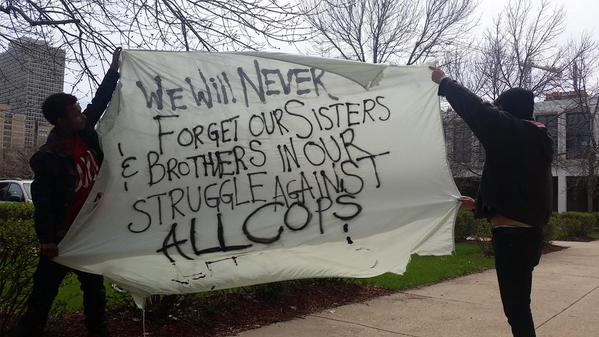 We Will NEVER
FORGET OUR SISTERS
& BROTHERS IN OUR
STRUGGLE AGAINST
ALL COPS!